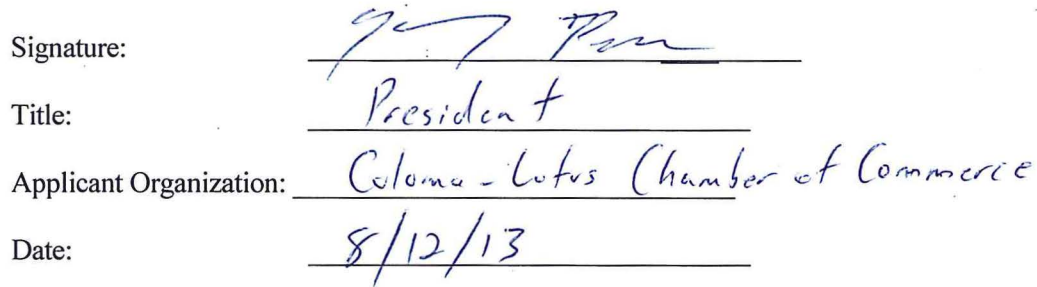 Signature:
Title: President
Applicant Organization: Coloma-Lotus Chamber of Commerce
Date: 8/12/13